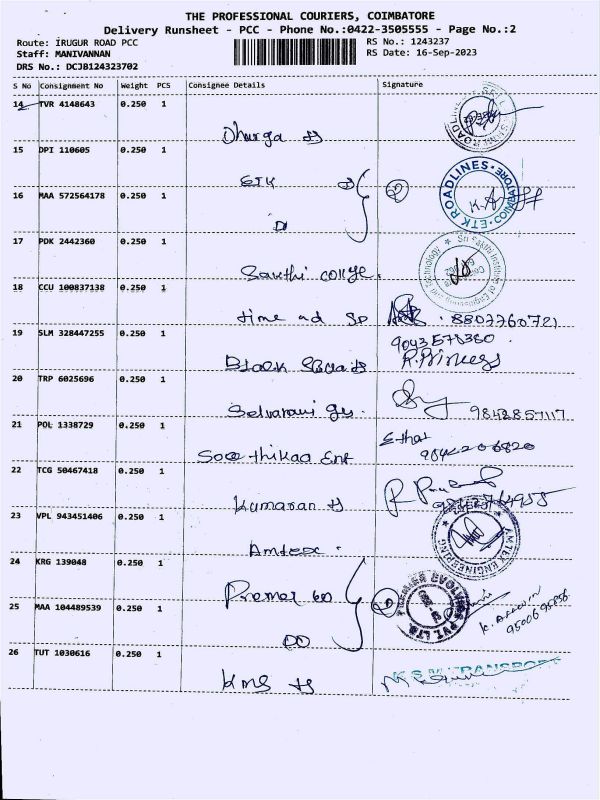 THE PROFESSIONAL COURIERS, COIMBATORE
Delivery Runsheet - PCC - Phone No.:0422-3505555 - Page No.:2
Route: IRUGUR ROAD PCC
RS No.: 1243237
Staff: MANIVANNAN
RS Date: 16-Sep-2023
DRS No.: DCJB124323702
S No Consignment No Weight PCS Consignee Details Signature
14 TVR 4148643 0.250 1
Dhurga
15 DPI 110605 0.250 1
ETK
ETK ROADLINES COIMBATORE
16 MAA 572564178 0.250 1
17 PDK 2442360 0.250 1
Sakthi college.
Sri Sakthi Institute of Engineering and Technology
18 CCU 100837138 0.250 1
time ad sp 8807760721
19 SLM 328447255 0.250 1
R.Princess
20 TRP 6025696 0.250 1
Selvarani
21 POL 1338729 0.250 1
9842206820
22 TCG 50467418 0.250 1
Kumaran
23 VPL 943451406 0.250 1
Amtex.
AMTEX ENGINEERING
24 KRG 139048 0.250 1
25 MAA 104489539 0.250 1
26 TUT 1030616 0.250 1
KMS
TRANSPORT